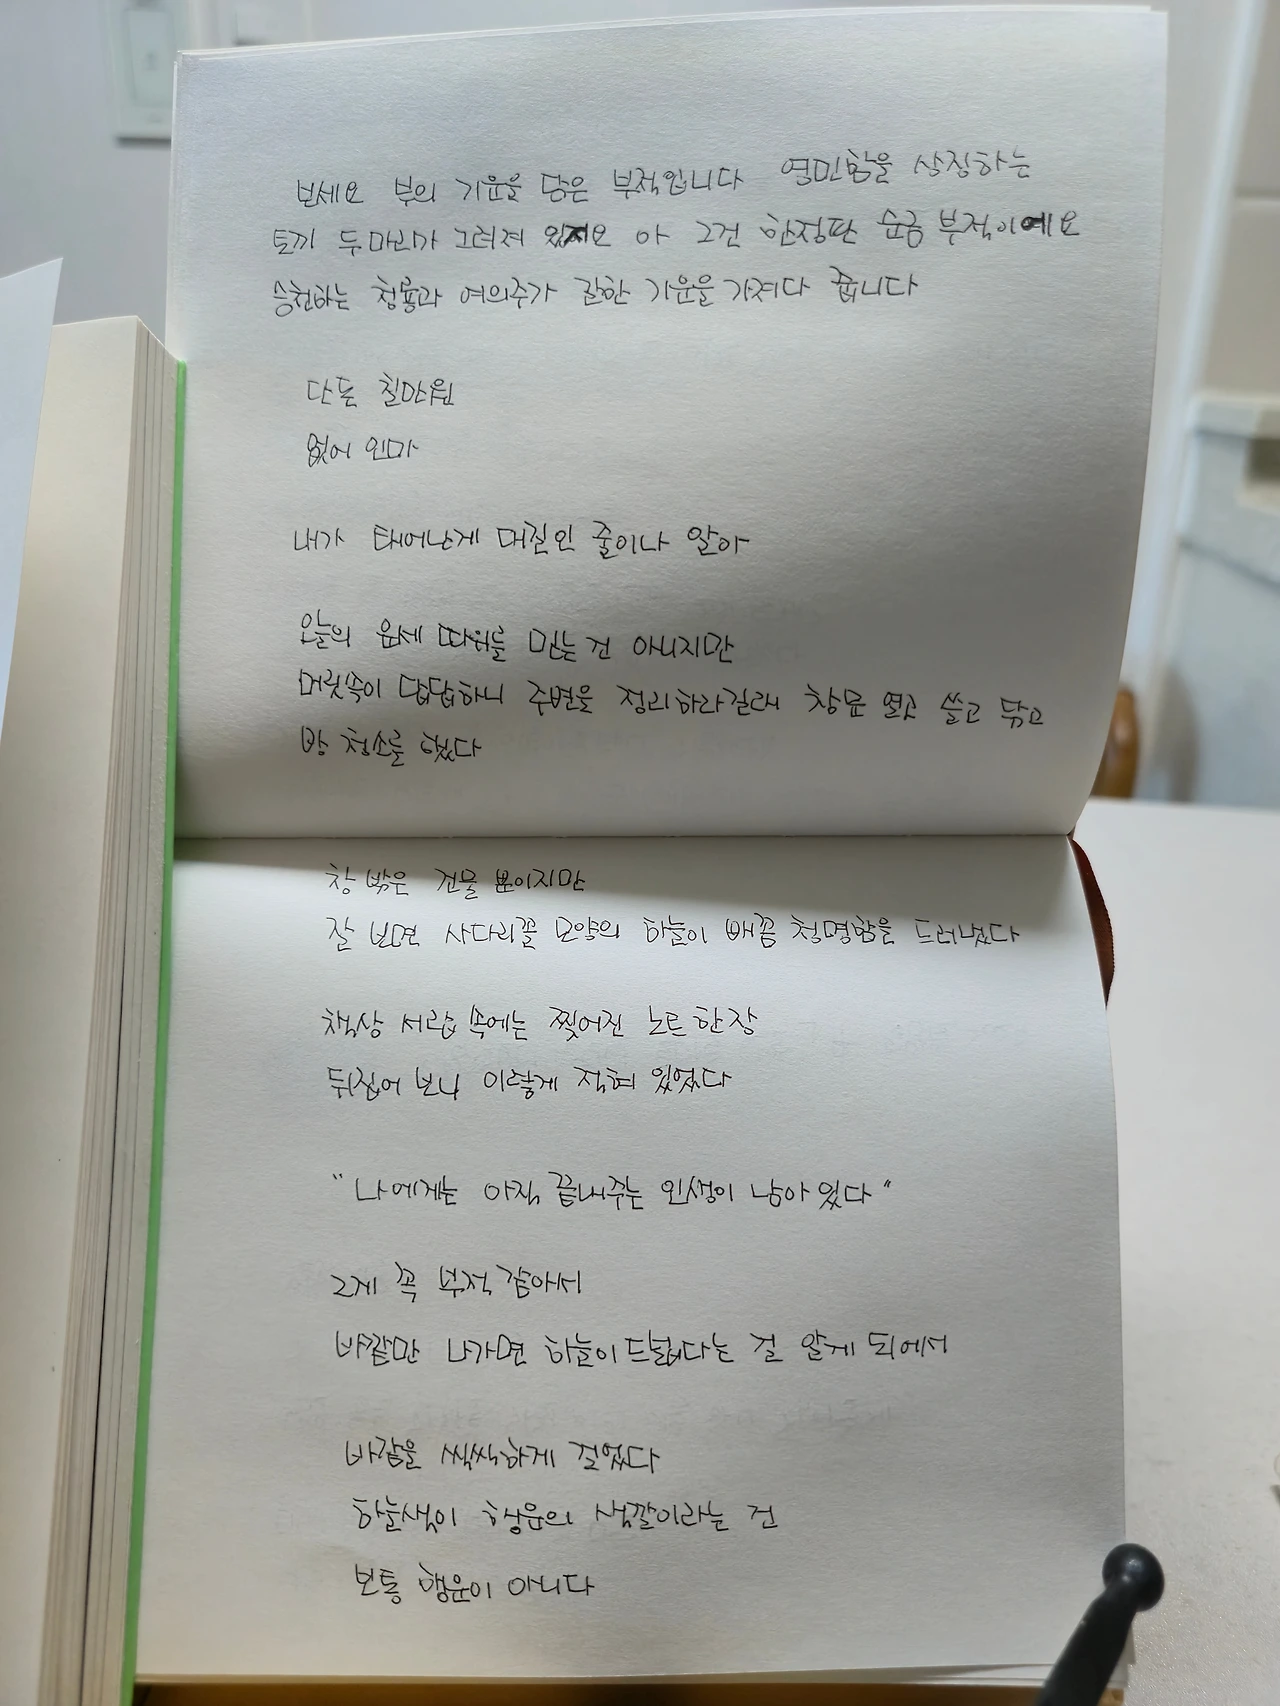 보세요 부의 기운을 담은 부적입니다 영민함을 상징하는
토끼 두마리가 그려져 있지요 아 그건 한정판 순금 부적이예요
승천하는 청룡과 여의주가 귀한 기운을 가져다 줍니다
단돈 칠만원
없어 인마
내가 태어난게 대길인 줄이나 알아
오늘의 운세 따위를 믿는 건 아니지만
머릿속이 답답하니 주변을 정리하라길래 창문 열고 쓸고 닦고
방 청소를 했다
창 밖은 건물 뿐이지만
잘 보면 사다리꼴 모양의 하늘이 배꼼 청명함을 드러냈다
책상 서랍 속에는 찢어진 노트 한 장
뒤집어 보니 이렇게 적혀 있었다
"나에게는 아직 끝내주는 인생이 남아 있다"
그게 꼭 부적 같아서
바깥만 나가면 하늘이 드넓다는 걸 알게 되어서
바깥을 씩씩하게 걸었다
하늘색이 행운의 색깔이라는 건
보통 행운이 아니다